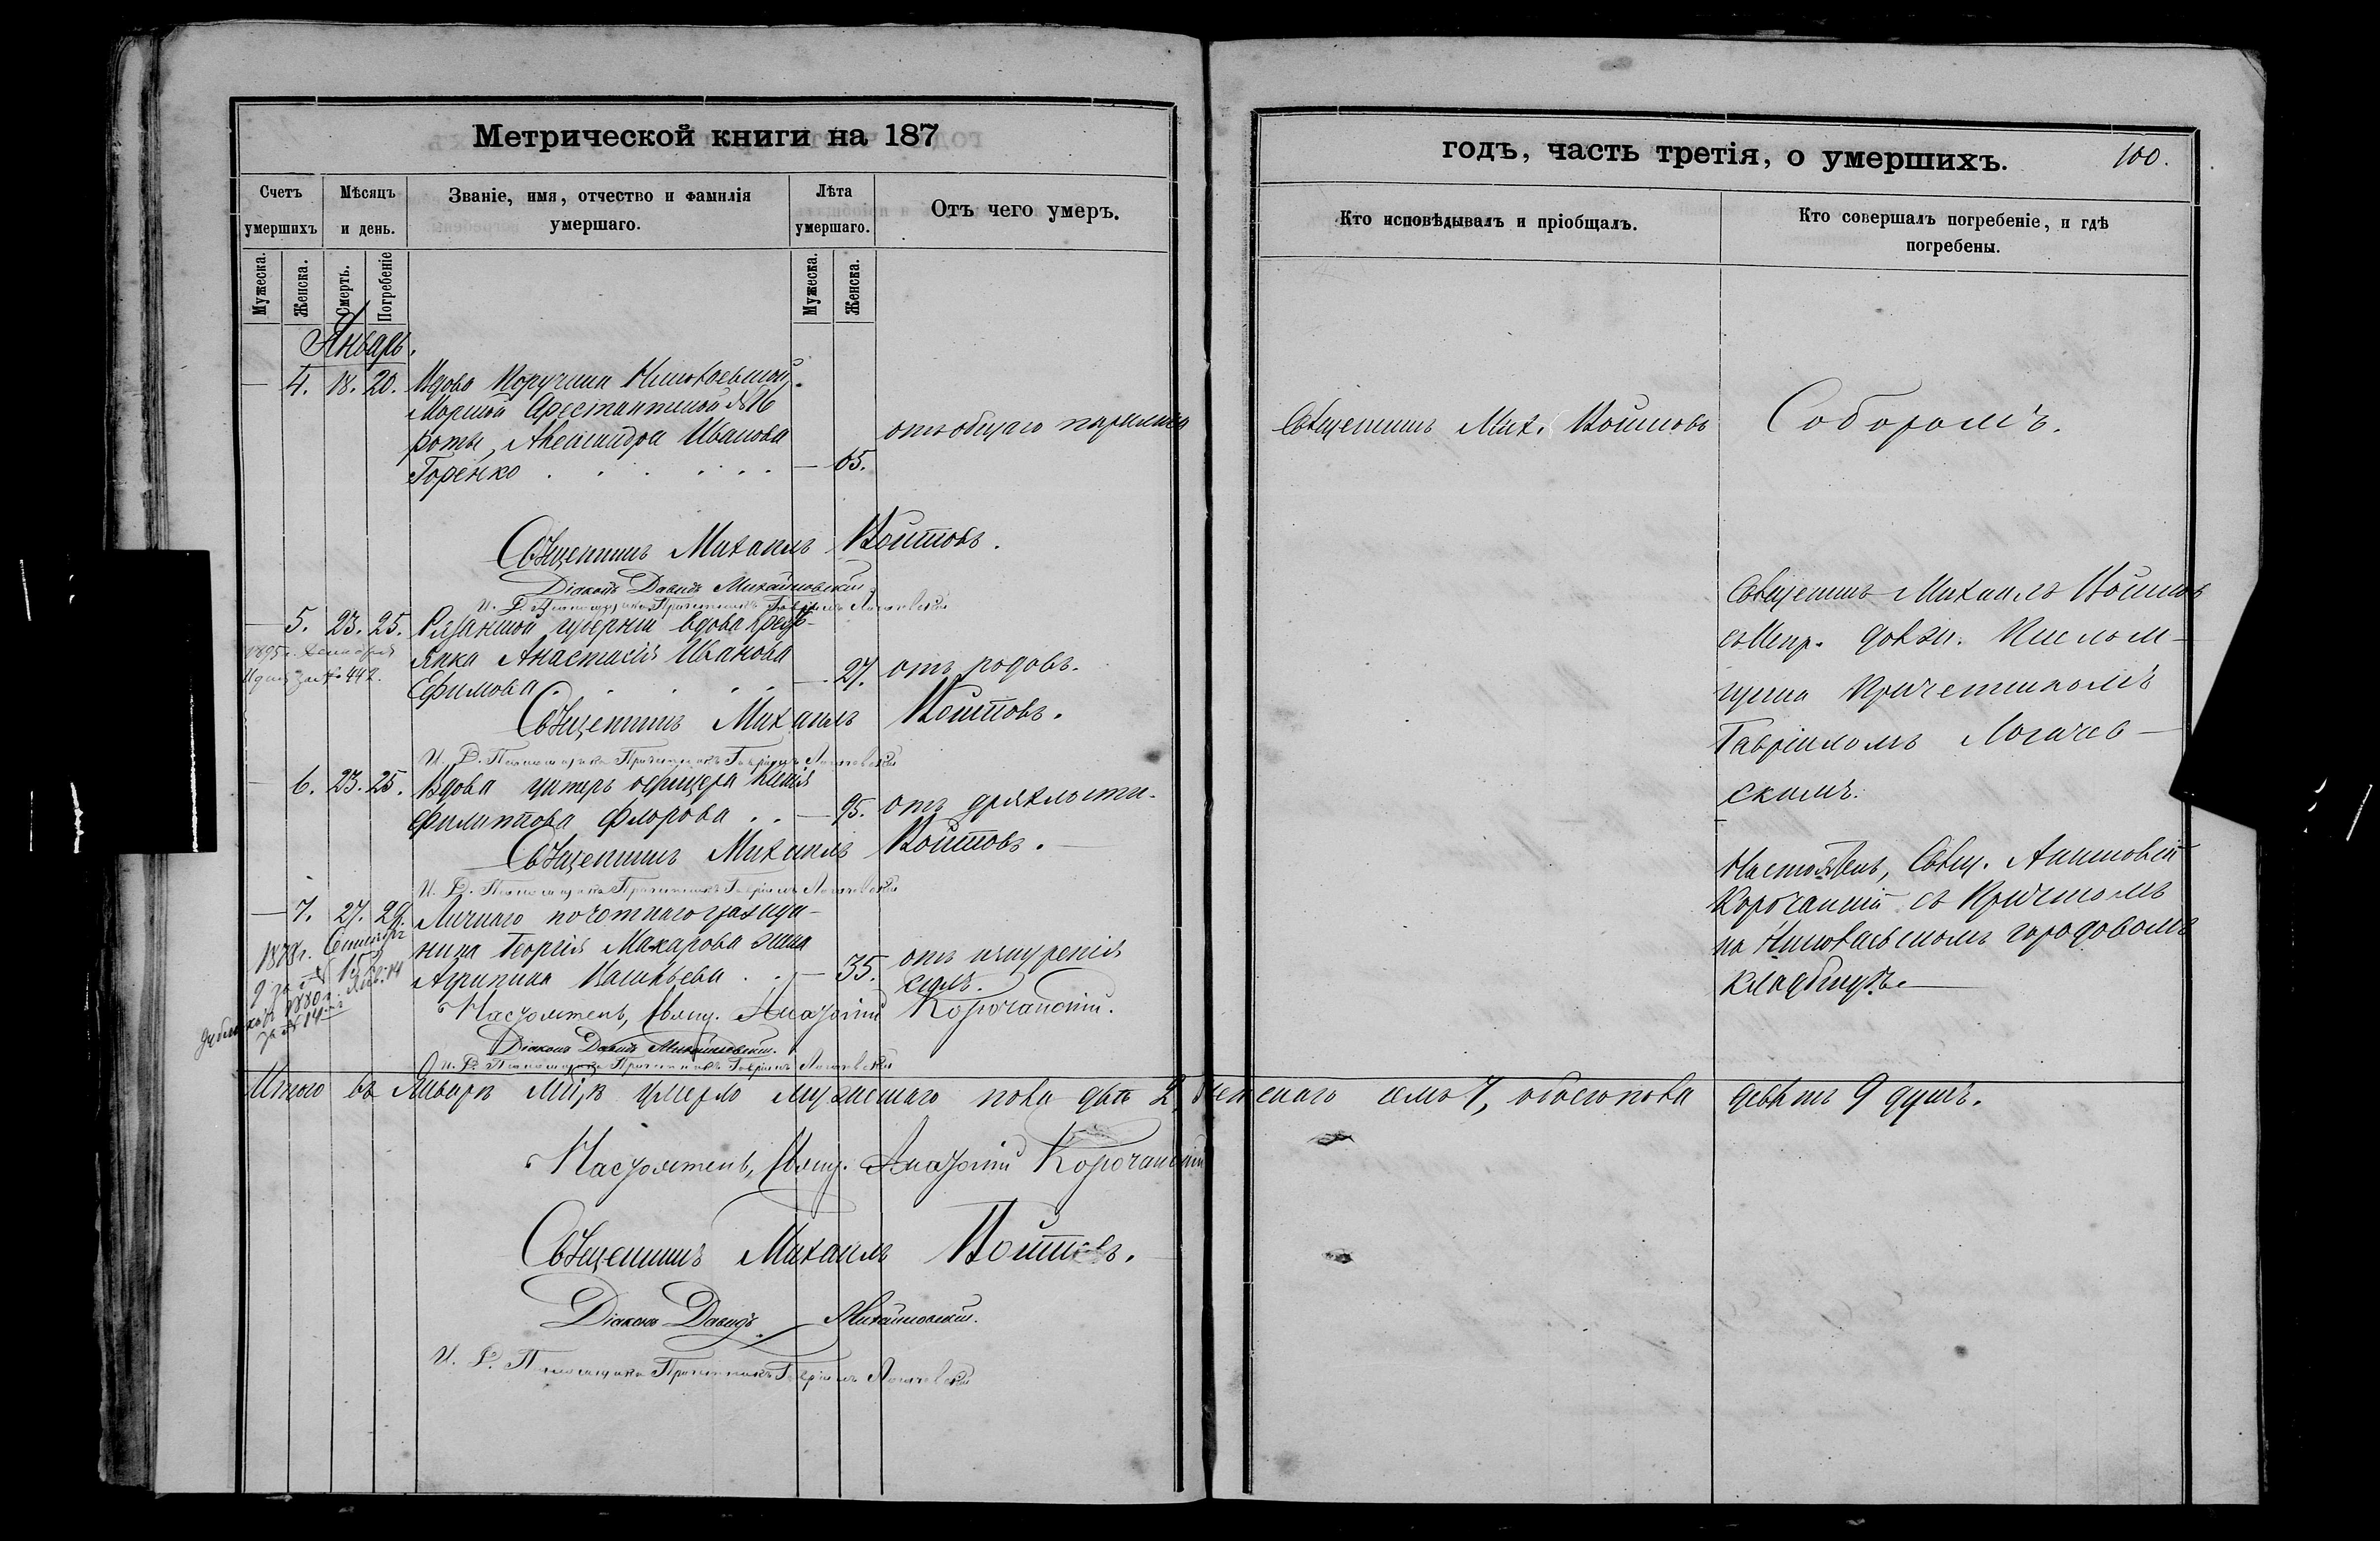 Метрической книги на 187
годъ, часть третія, о умершихъ.
100.
Счетъ умершихъ
Мѣсяцъ и день.
Званіе, имя, отчество и фамилія умершаго.
Лѣта умершаго.
Отъ чего умеръ.
Кто исповѣдывалъ и пріобщалъ.
Кто совершалъ погребеніе, и гдѣ погребены.
Мужеска.
Женска.
Смерть.
Погребеніе
Мужеска.
Женска.
Январь.
— 4. 18. 20. Вдова Поручика Николаевской
Морской Арестантской № 16
роты, Александра Иванова
Горенко . . . . . . — 65.
отъ общаго паралича
Священникъ Мих. Войтовъ
Соборомъ.
Священникъ Михаилъ Войтовъ.
Діаконъ Давидъ Михайловскій
И. Д. Псаломщика Причетникъ Гавріилъ Логачевскій
— 5. 23. 25. Рязанской губерніи вдова крестьянка Анастасія Иванова
Ефимова . . . . . — 27. отъ родовъ.
за № 442.
Священникъ Михаилъ Войтовъ.
И. Д. Псаломщика Причетникъ Гавріилъ Логачевскій
Священникъ Михаилъ Войтовъ
съ Испр. долж. Псаломщика Причетникомъ
Гавріиломъ Логачевскимъ.
— 6. 23. 25. Вдова унтеръ офицера
Филиппова Флорова . . — 95. отъ дряхлости.
Священникъ Михаилъ Войтовъ.
И. Д. Псаломщика Причетникъ Гавріилъ Логачевскій
— 7. 27. 29. Личнаго почотнаго гражданина Георгія Макарова жена
Агрипина Васильева . . — 35. отъ изнуренія
силъ.
1878г.
за № 15
1880г.
за № 14
Настоятель, Свящ. Анатолій Корочанскій.
Діаконъ Давидъ Михайловскій.
И. Д. Псаломщика Причетникъ Гавріилъ Логачевскій
Настоятель, Свящ. Анатолій
Корочанскій съ Причтомъ
на Николаевскомъ городовомъ
кладбищѣ.
Итого въ Январѣ м-цѣ умерло мужескаго пола два 2, женскаго семь 7, обоего пола девять 9 душъ.
Настоятель, Свящ. Анатолій Корочанскій
Священникъ Михаилъ Войтовъ.
Діаконъ Давидъ Михайловскій.
И. Д. Псаломщика Причетникъ Гавріилъ Логачевскій